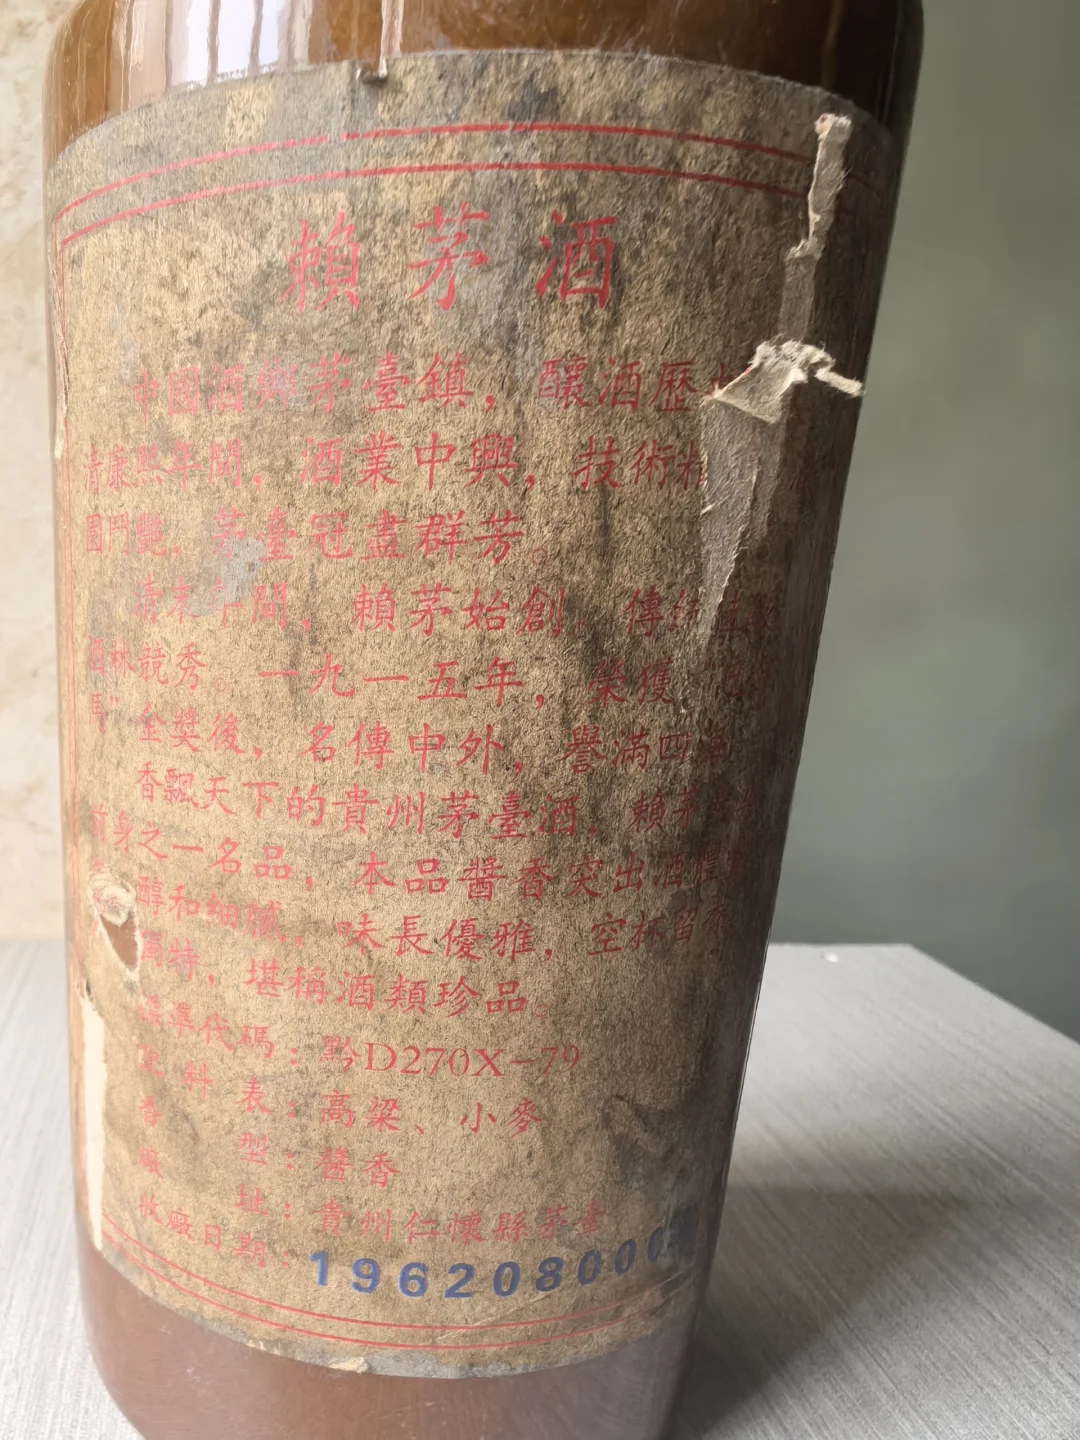 賴茅酒
中國酒鄉茅臺鎮，釀酒歷
清康熙年間，酒業中興，技術
鬥艷，茅臺冠盡群芳。
清末年間，賴茅始創，傳統
林競秀。一九一五年，榮獲"巴拿
馬"金獎後，名傳中外，譽滿四海
香飄天下的貴州茅臺酒，賴茅
前身之一名品，本品醬香突出酒體
醇和細膩，味長優雅，空杯留香
獨特，堪稱酒類珍品。
標準代碼：黔D270X-79
原料表：高粱、小麥
香型：醬香
廠址：貴州仁懷縣茅臺
出廠日期：196208000